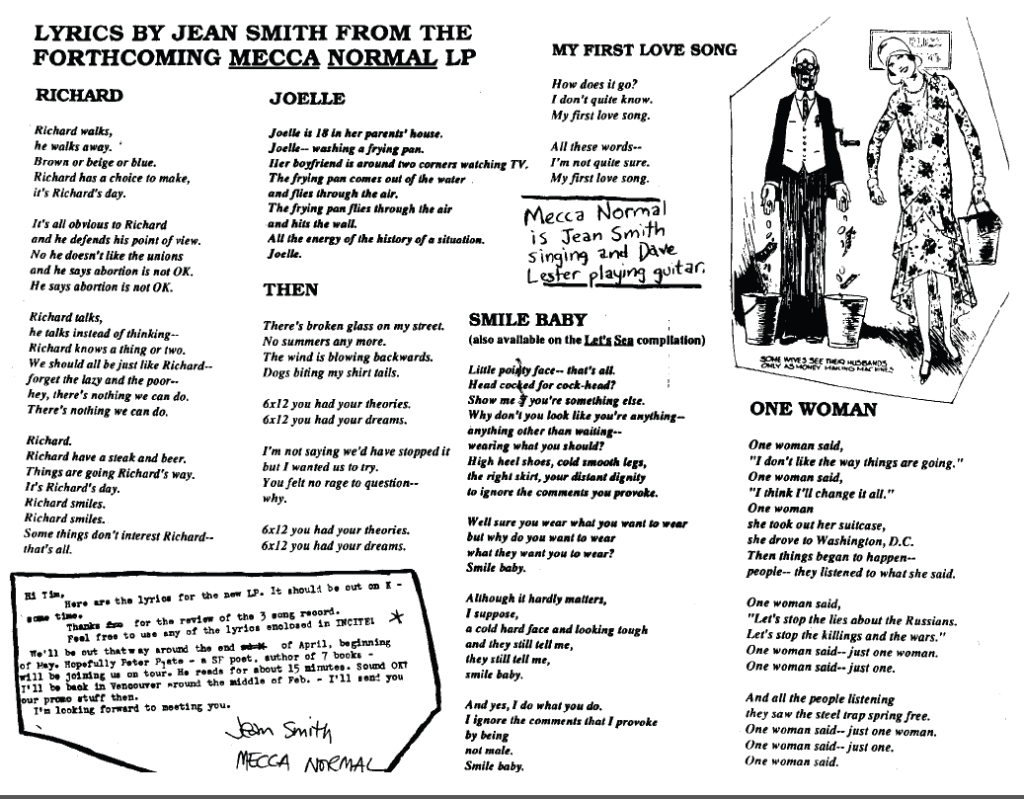 LYRICS BY JEAN SMITH FROM THE
FORTHCOMING MECCA NORMAL LP
RICHARD
Richard walks,
he walks away.
Brown or beige or blue.
Richard has a choice to make,
it's Richard's day.
It's all obvious to Richard
and he defends his point of view.
No he doesn't like the unions
and he says abortion is not OK.
He says abortion is not OK.
Richard talks,
he talks instead of thinking--
Richard knows a thing or two.
We should all be just like Richard--
forget the lazy and the poor--
hey, there's nothing we can do.
There's nothing we can do.
Richard.
Richard have a steak and beer.
Things are going Richard's way.
It's Richard's day.
Richard smiles.
Richard smiles.
Some things don't interest Richard--
that's all.
JOELLE
Joelle is 18 in her parents' house.
Joelle-- washing a frying pan.
Her boyfriend is around two corners watching TV.
The frying pan comes out of the water
and flies through the air.
The frying pan flies through the air
and hits the wall.
All the energy of the history of a situation.
Joelle.
THEN
There's broken glass on my street.
No summers any more.
The wind is blowing backwards.
Dogs biting my shirt tails.
6x12 you had your theories.
6x12 you had your dreams.
I'm not saying we'd have stopped it
but I wanted us to try.
You felt no rage to question--
why.
6x12 you had your theories.
6x12 you had your dreams.
Hi Tim,
Here are the lyrics for the new LP. It should be out on K -
some time.
Thanks for the review of the 3 song record.
Feel free to use any of the lyrics enclosed in INCITE!
We'll be out that way around the end of April, beginning
of May. Hopefully Peter Plate - a SF poet, author of 7 books -
will be joining us on tour. He reads for about 15 minutes. Sound OK?
I'll be back in Vancouver around the middle of Feb. - I'll send you
our promo stuff then.
I'm looking forward to meeting you.
Jean Smith
MECCA NORMAL
MY FIRST LOVE SONG
How does it go?
I don't quite know.
My first love song.
All these words--
I'm not quite sure.
My first love song.
Mecca Normal
is Jean Smith
singing and Dave
Lester playing guitar.
SMILE BABY
(also available on the Let's Sea compilation)
Little pointy face-- that's all.
Head cocked for cock-head?
Show me you're something else.
Why don't you look like you're anything--
anything other than waiting--
wearing what you should?
High heel shoes, cold smooth legs,
the right skirt, your distant dignity
to ignore the comments you provoke.
Well sure you wear what you want to wear
but why do you want to wear
what they want you to wear?
Smile baby.
Although it hardly matters,
I suppose,
a cold hard face and looking tough
and they still tell me,
they still tell me,
smile baby.
And yes, I do what you do.
I ignore the comments that I provoke
by being
not male.
Smile baby.
SOME WIVES SEE THEIR HUSBANDS
ONLY AS MONEY MAKING MACHINES
ONE WOMAN
One woman said,
"I don't like the way things are going."
One woman said,
"I think I'll change it all."
One woman
she took out her suitcase,
she drove to Washington, D.C.
Then things began to happen--
people-- they listened to what she said.
One woman said,
"Let's stop the lies about the Russians.
Let's stop the killings and the wars."
One woman said-- just one woman.
One woman said-- just one.
And all the people listening
they saw the steel trap spring free.
One woman said-- just one woman.
One woman said-- just one.
One woman said.